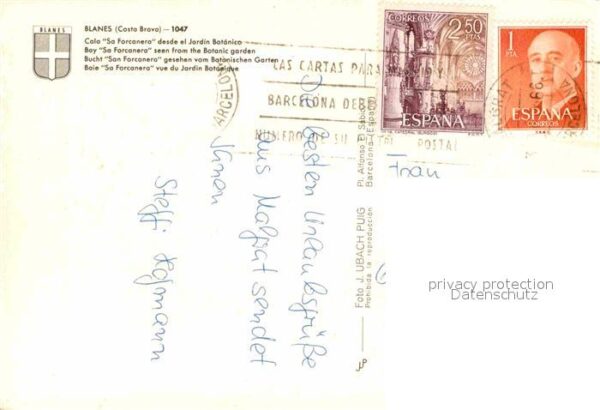 BLANES
BLANES (Costa Brava) — 1047
Cala "Sa Forcanera" desde el Jardín Botánico
Bay "Sa Forcanera" seen from the Botanic garden
Bucht "San Forcanera" gesehen vom Botanischen Garten
Baie "Sa Forcanera" vue du Jardin Botanique
CORREOS
2,50 PTAS
ESPAÑA
1 PTA
ESPAÑA
CORREOS
LAS CARTAS PARA
BARCELONA DEBEN
NUMERO DE SU
POSTAL
Die besten Urlaubsgrüße
aus Malgrat sendet
Ihnen
Steffi Hofmann
Frau
Foto J. UBACH PUIG
Prohibida la reproducción
Pl. Alfonso el Sabio
Barcelona (España)
privacy protection
Datenschutz